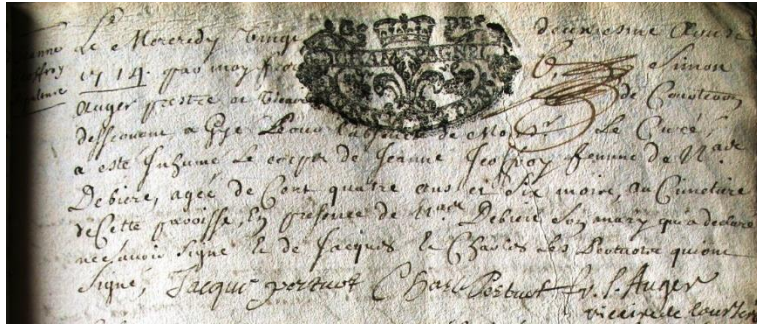 Le Mercredy vingt deuxiesme
1714. par moy Simon
Auger prestre et vicaire de Courteron
desservant a Gyé Pour l'absence de Le Curé,
a este Inhumé Le corps de Jeanne Jeoffroy femme de
Debiere, agée de Cent quatre ans et Six mois, au Cimetiere
de Cette paroisse, En presence de Debiere Son mary qui a declaré
ne scavoir signe et de Jacques et Charles Les qui ont
Signé, Jacque pertuot Charle Pertuot f. S. Auger
vicaire de Courteron